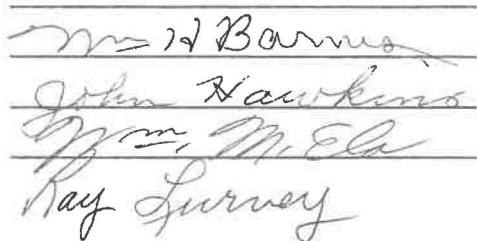 Wm H Barnes
John Hawkins
Wm. M. Ela
Ray Lurvey